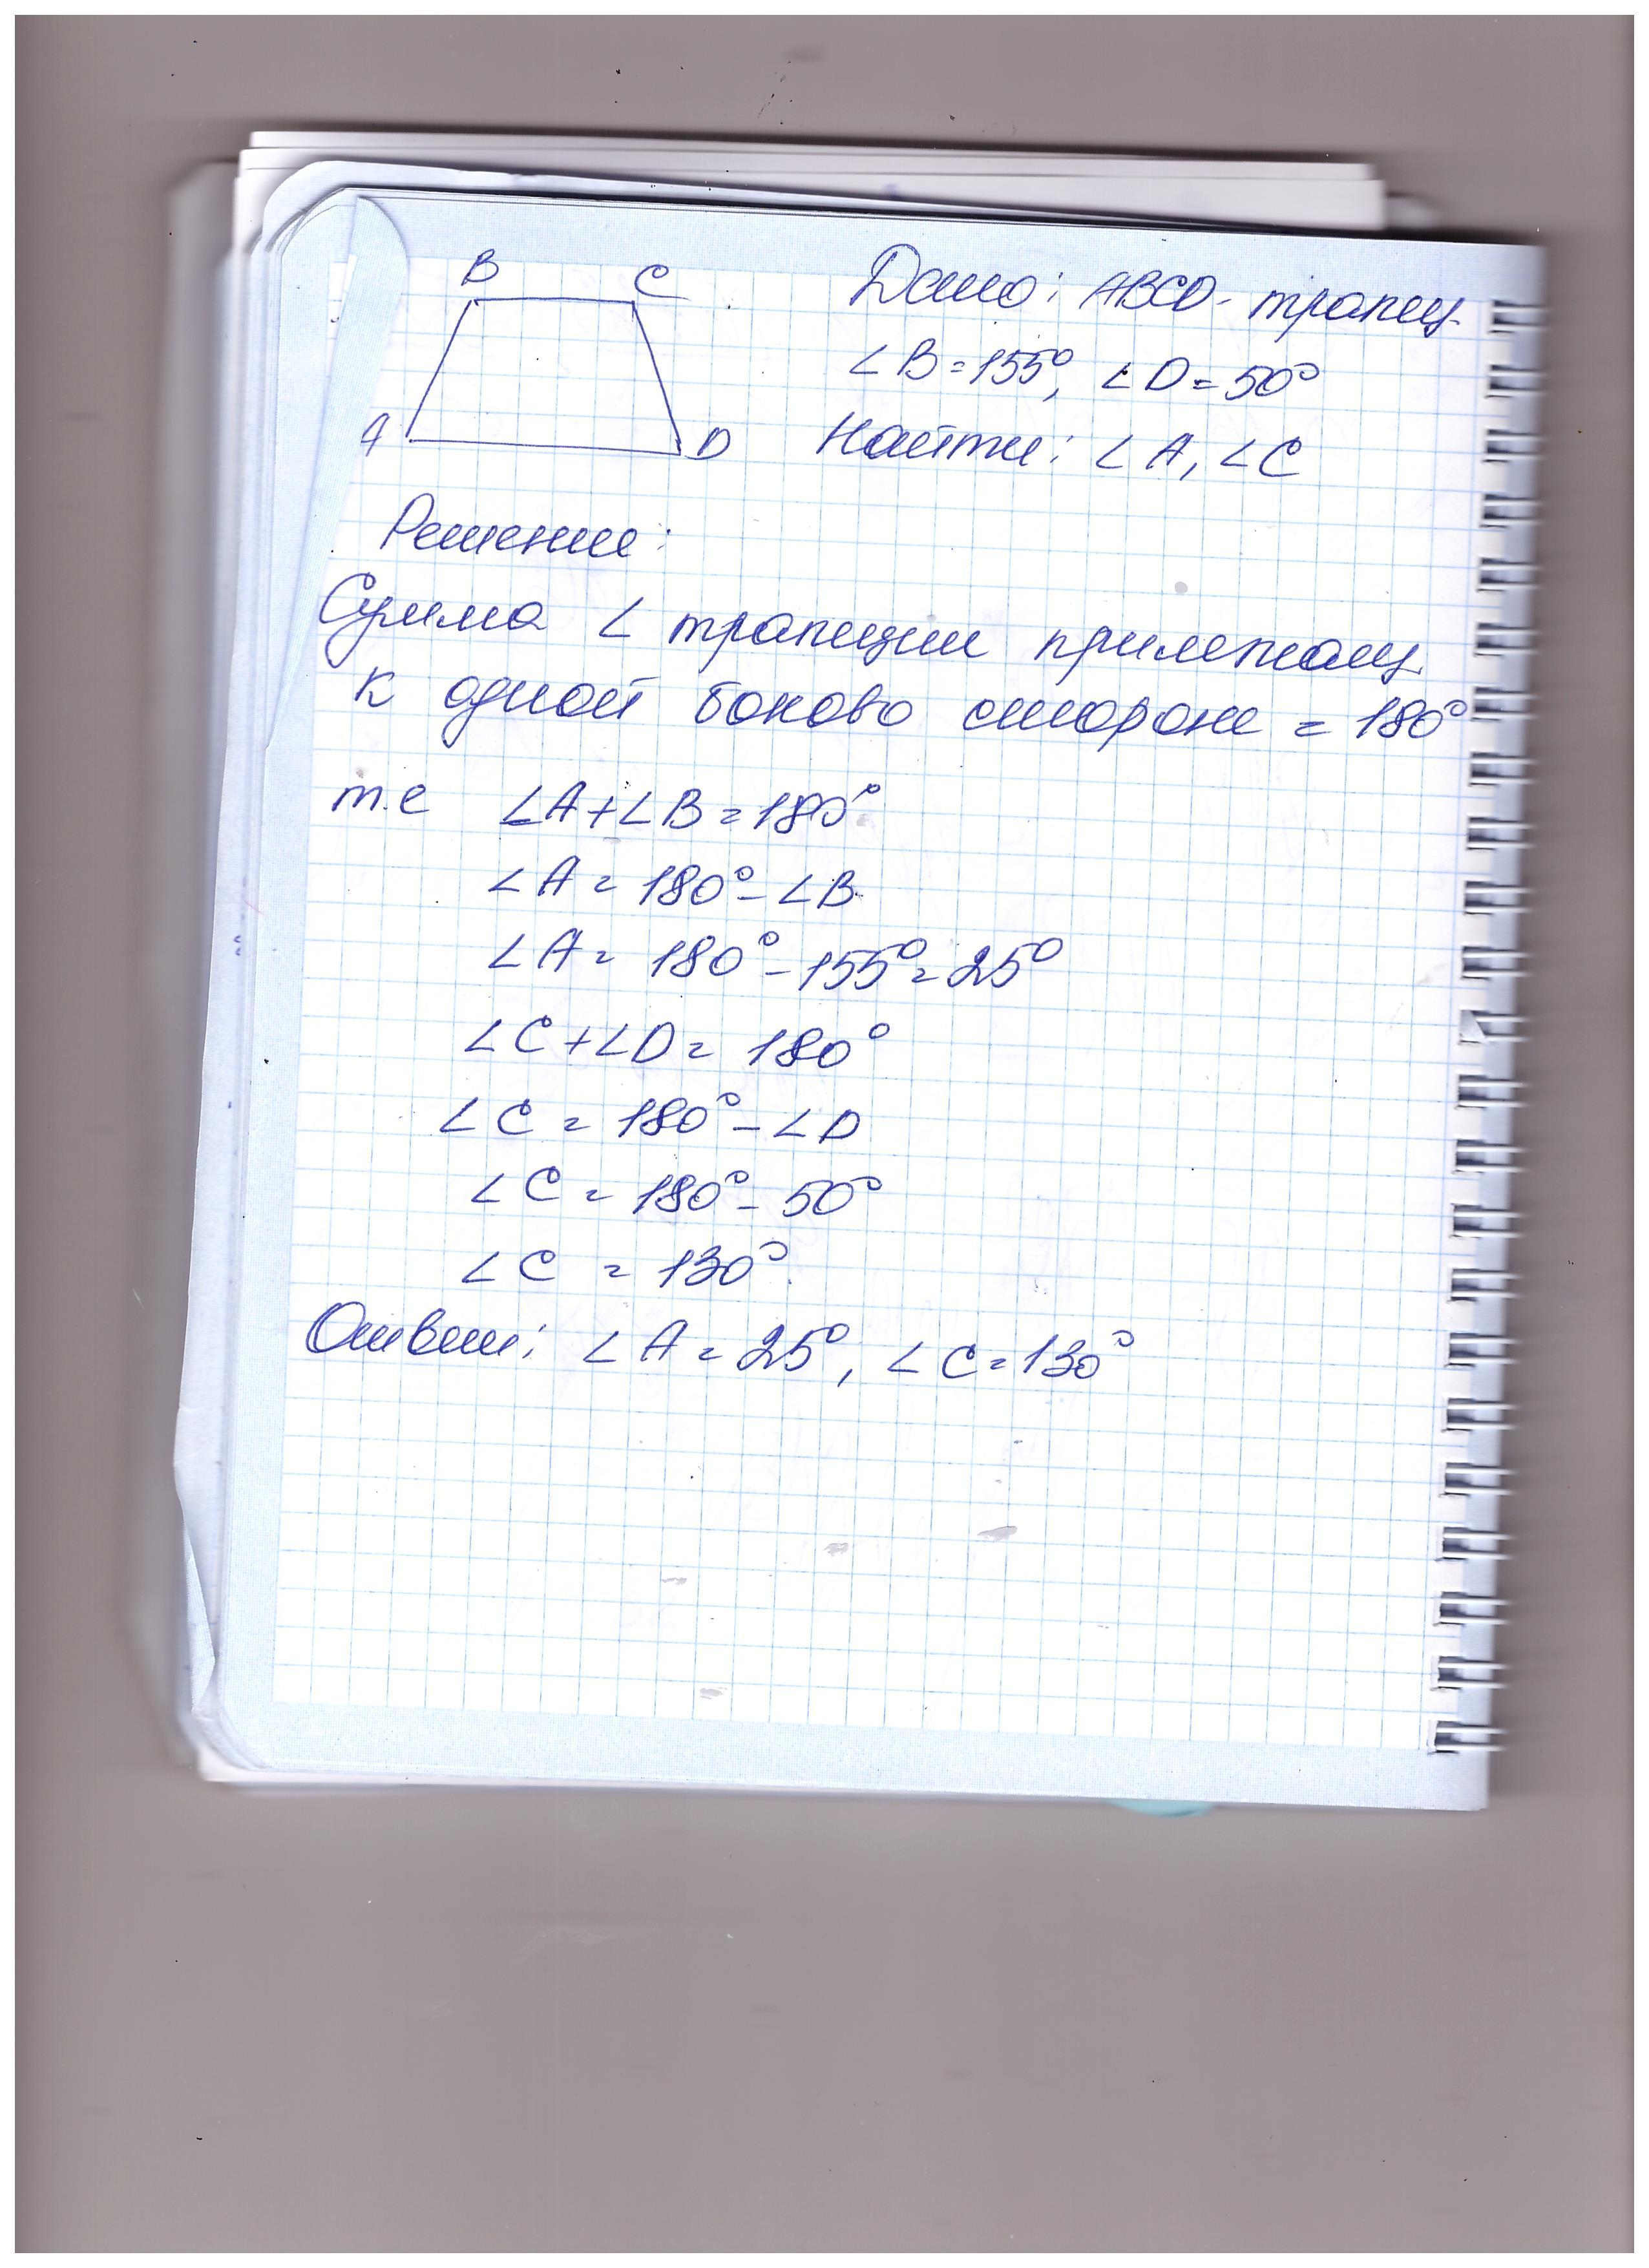 B C
A D
Дано: ABCD - трапец.
∠B = 155°, ∠D = 50°
Найти: ∠A, ∠C
Решение:
Сумма ∠ трапеции прилежащ.
к одной боково стороне = 180°
т.е ∠A + ∠B = 180°
∠A = 180° - ∠B.
∠A = 180° - 155° = 25°
∠C + ∠D = 180°
∠C = 180° - ∠D
∠C = 180° - 50°
∠C = 130°.
Ответ: ∠A = 25°, ∠C = 130°